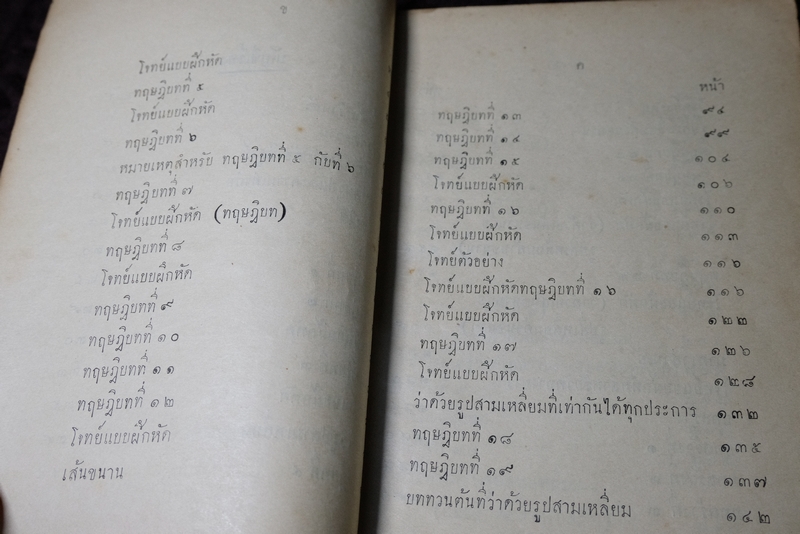 ข
โจทย์แบบฝึกหัด
ทฤษฎิบทที่ ๕
โจทย์แบบฝึกหัด
ทฤษฎิบทที่ ๖
หมายเหตุสำหรับ ทฤษฎิบทที่ ๕ กับที่ ๖
ทฤษฎิบทที่ ๗
โจทย์แบบฝึกหัด (ทฤษฎิบท)
ทฤษฎิบทที่ ๘
โจทย์แบบฝึกหัด
ทฤษฎิบทที่ ๙
ทฤษฎิบทที่ ๑๐
ทฤษฎิบทที่ ๑๑
ทฤษฎิบทที่ ๑๒
โจทย์แบบฝึกหัด
เส้นขนาน
ค
หน้า
ทฤษฎิบทที่ ๑๓ ๙๔
ทฤษฎิบทที่ ๑๔ ๙๙
ทฤษฎิบทที่ ๑๕ ๑๐๔
โจทย์แบบฝึกหัด ๑๐๖
ทฤษฎิบทที่ ๑๖ ๑๑๐
โจทย์แบบฝึกหัด ๑๑๓
โจทย์ตัวอย่าง ๑๑๖
โจทย์แบบฝึกหัดทฤษฎิบทที่ ๑๖ ๑๑๖
โจทย์แบบฝึกหัด ๑๒๒
ทฤษฎิบทที่ ๑๗ ๑๒๖
โจทย์แบบฝึกหัด ๑๒๘
ว่าด้วยรูปสามเหลี่ยมที่เท่ากันได้ทุกประการ ๑๓๒
ทฤษฎิบทที่ ๑๘ ๑๓๕
ทฤษฎิบทที่ ๑๙ ๑๓๗
บททวนต้นที่ว่าด้วยรูปสามเหลี่ยม ๑๔๒